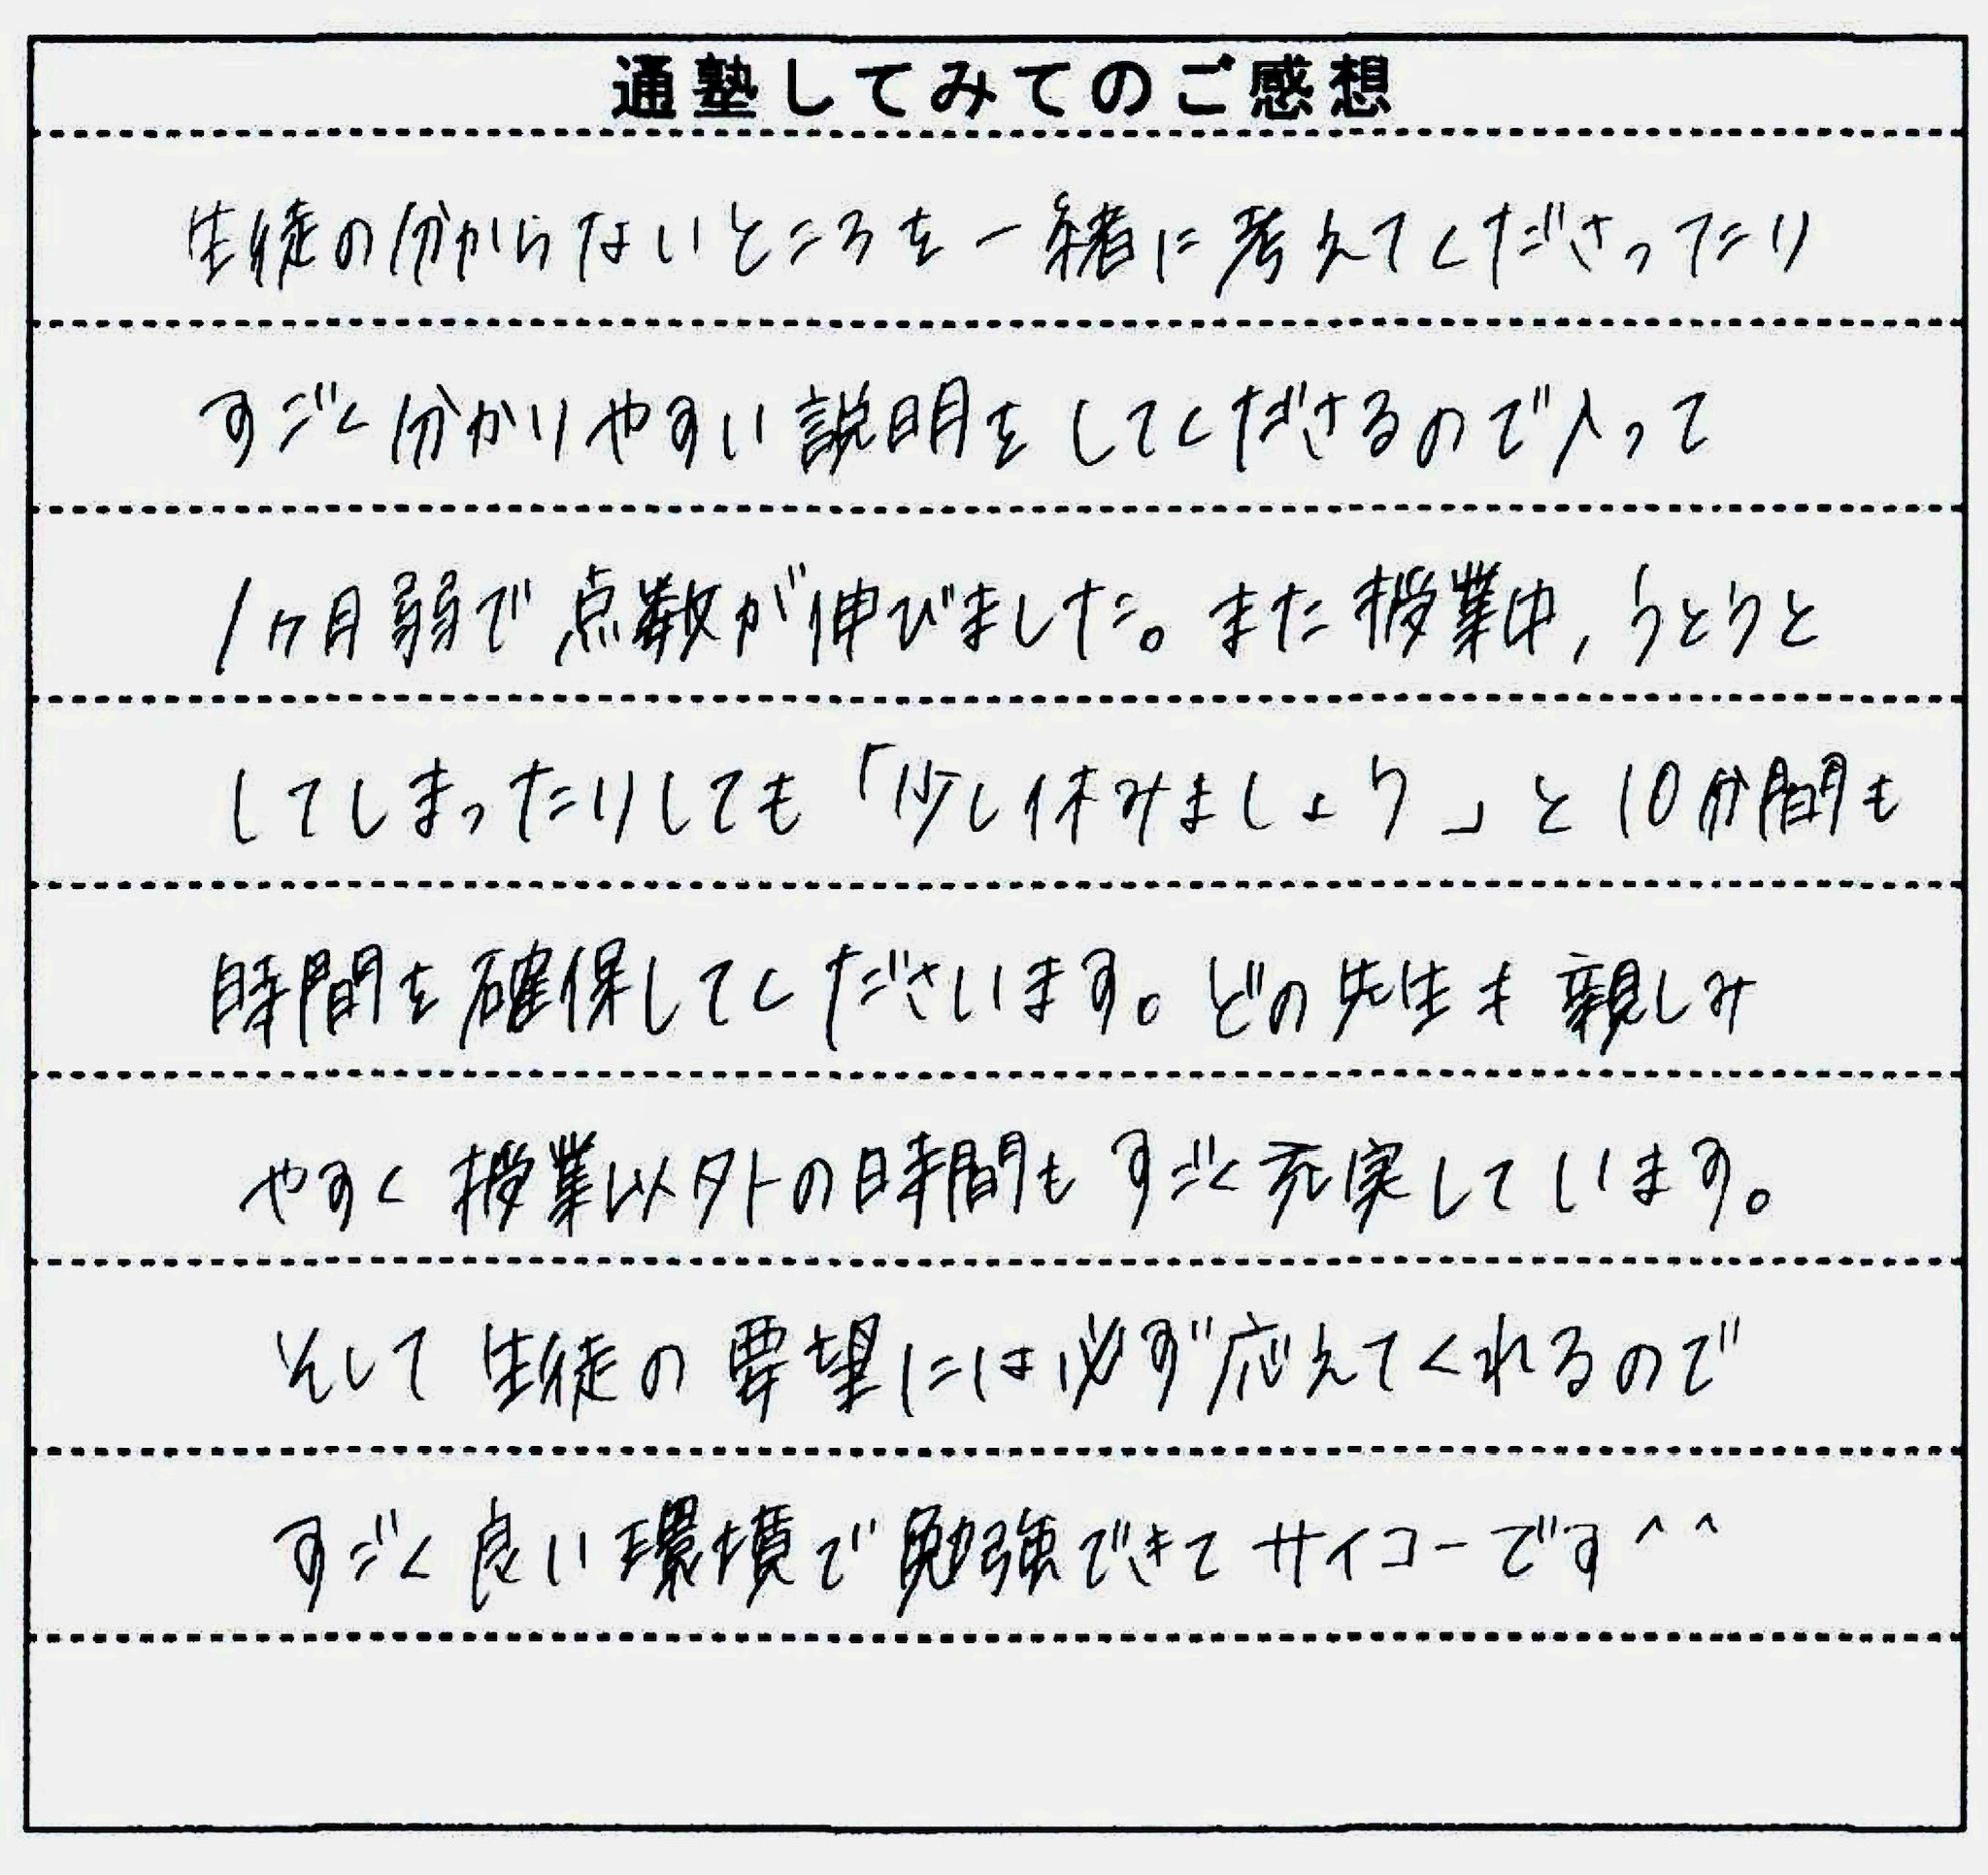 通塾してみてのご感想
生徒の分からないところを一緒に考えてくださったり
すごく分かりやすい説明をしてくださるので入って
1ヶ月弱で点数が伸びました。また授業中,うとうと
してしまったりしても「少し休みましょう」と10分間も
時間を確保してくださいます。どの先生も親しみ
やすく授業以外の時間もすごく充実しています。
そして生徒の要望には必ず応えてくれるので
すごく良い環境で勉強できてサイコーです^^